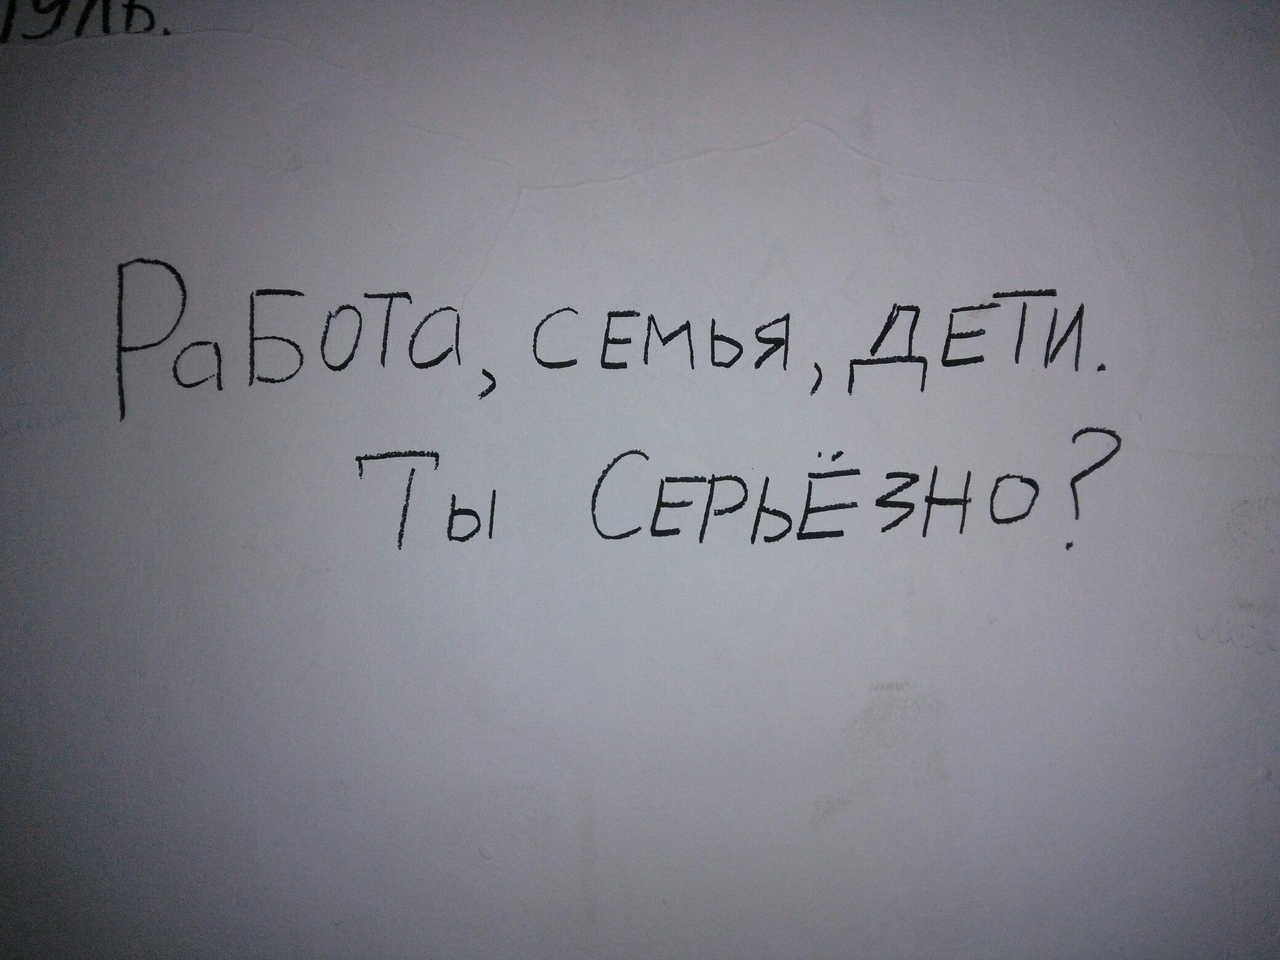 Работа, семья, дети.
Ты Серьёзно?